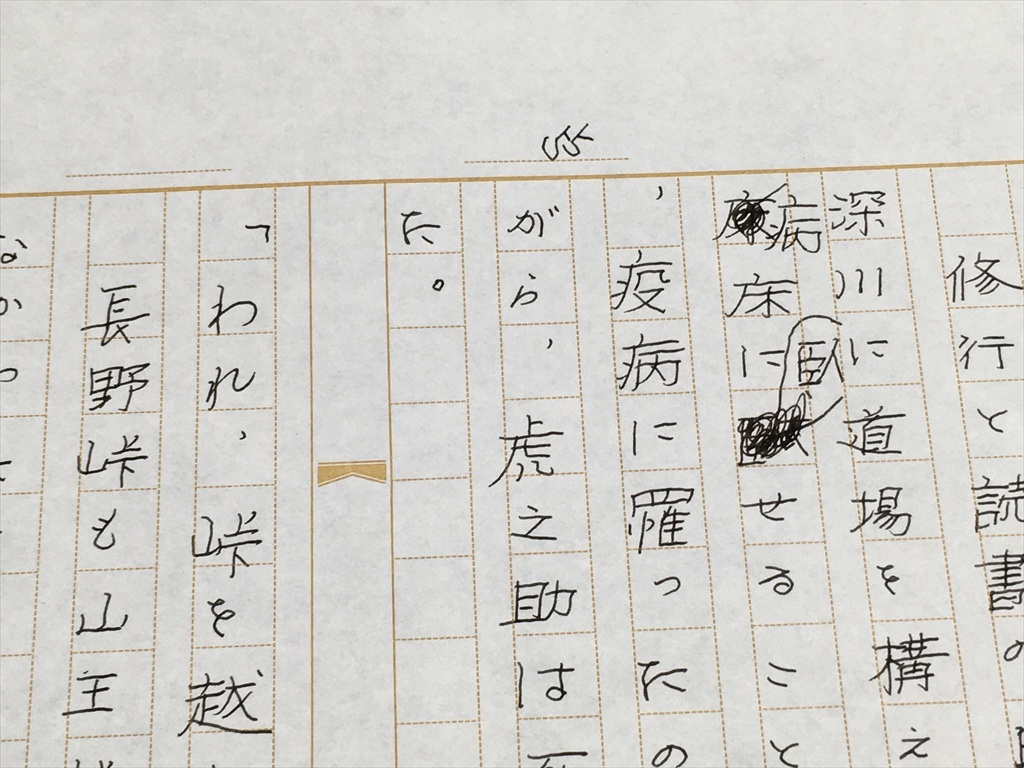 55
修行と読書の
深川に道場を構え
病床に臥せること
、疫病に罹ったの
がら、虎之助は死
た。
「われ、峠を越
長野峠も山王
なかっ